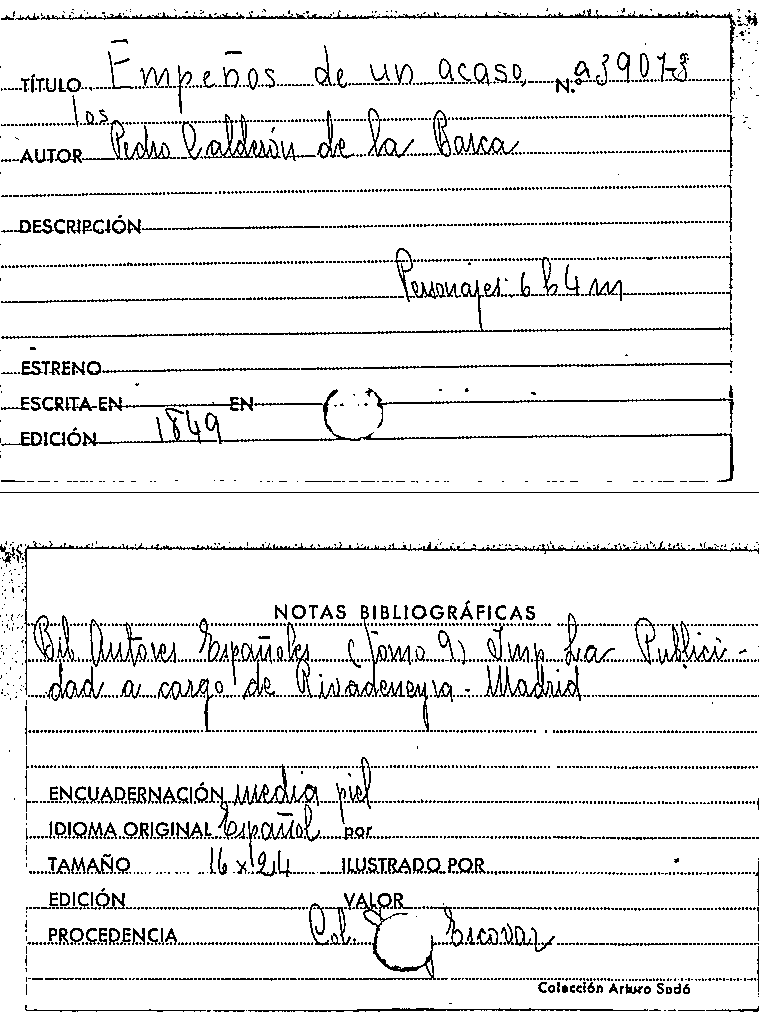 TÍTULO Empeños de un acaso, N.º a 3907-8
los
AUTOR Pedro Calderón de la Barca
DESCRIPCIÓN
Personajes 6 h 4 m
ESTRENO
ESCRITA EN EN
EDICIÓN 1849
NOTAS BIBLIOGRÁFICAS
Bib Autores Españoles (Tomo 9) Imp La Publici-
dad a cargo de Rivadeneyra - Madrid
ENCUADERNACIÓN media piel
IDIOMA ORIGINAL Español por
TAMAÑO 16 x 24 ILUSTRADO POR
EDICIÓN VALOR
PROCEDENCIA Col. Escovar
Colección Arturo Sedó